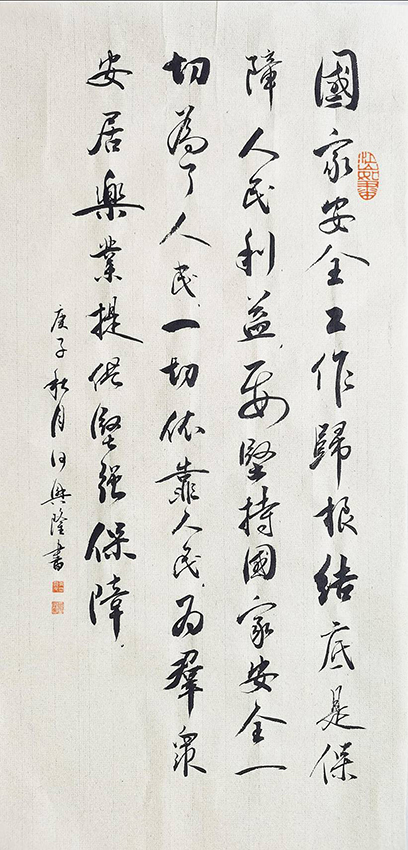 國家安全工作歸根結底是保
障人民利益,要堅持國家安全一
切為了人民、一切依靠人民,为羣眾
安居樂業提供堅强保障.
庚子秋月何興隆書